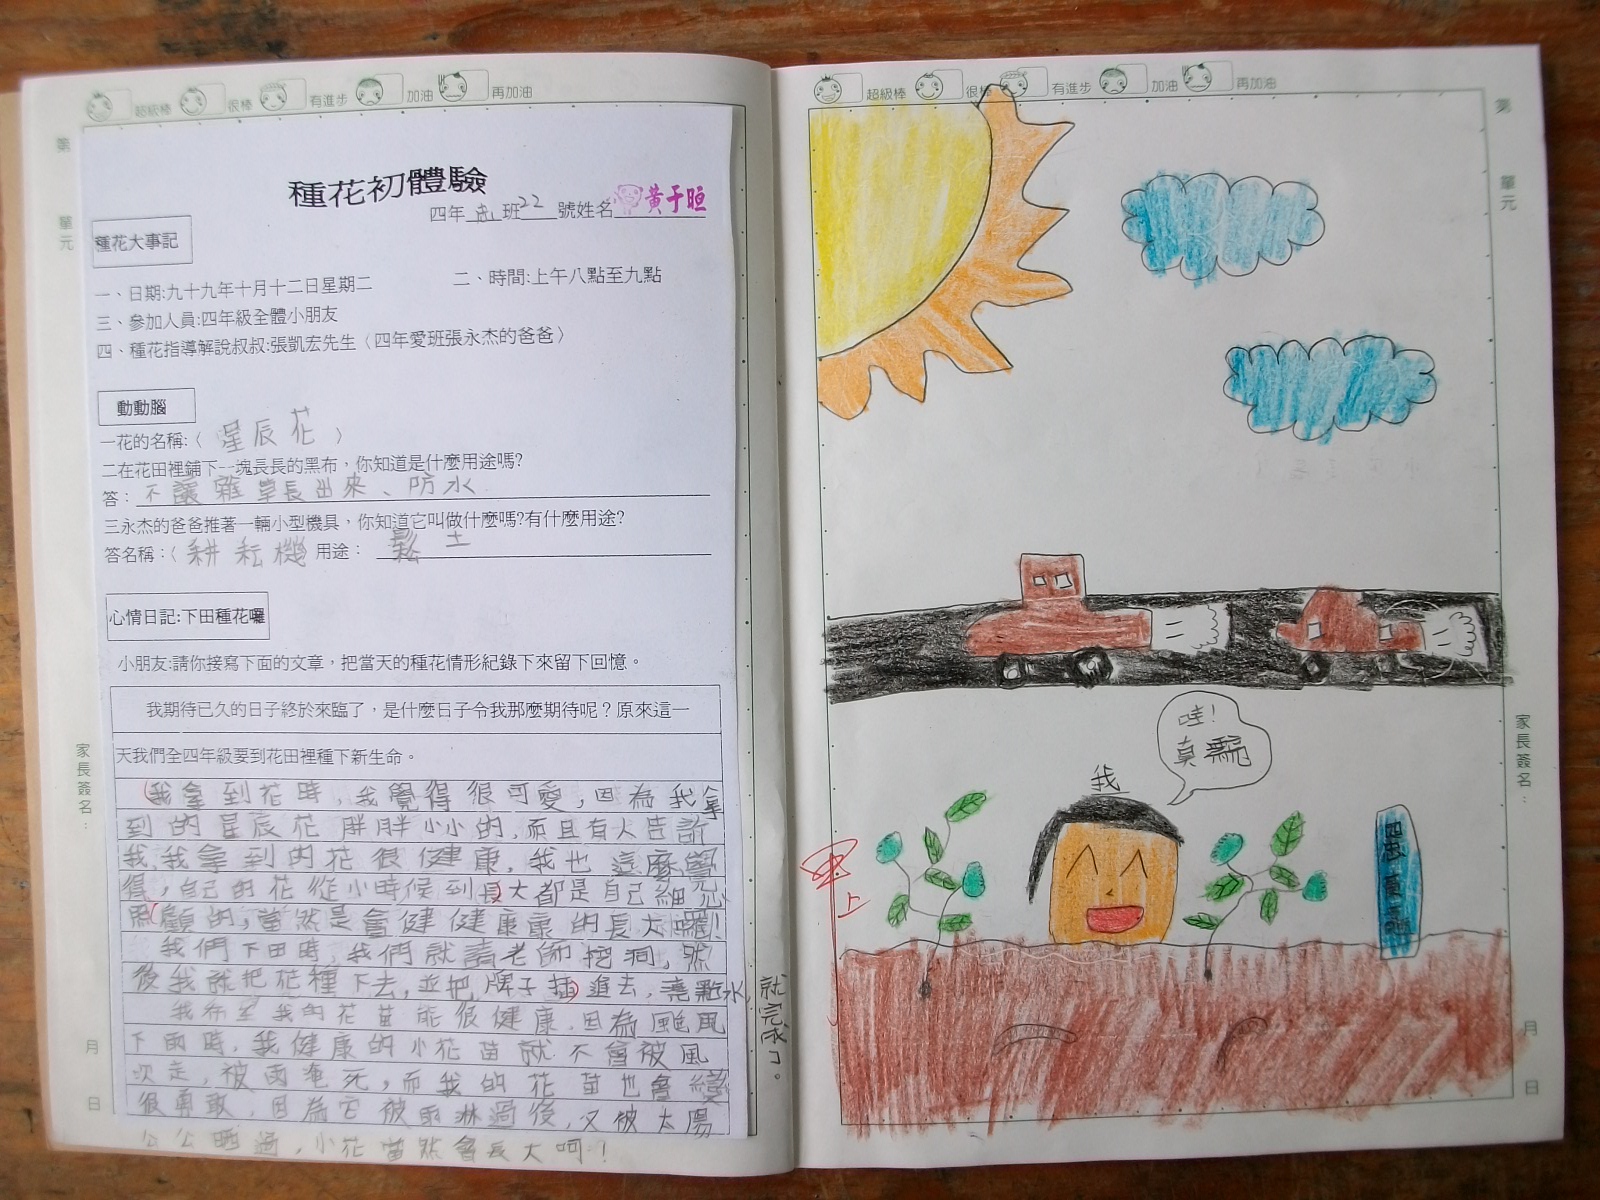 超級棒 很棒 有進步 加油 再加油
第 單元
種花初體驗
四年 忠 班 22 號姓名 黃于晅
種花大事記
一、日期:九十九年十月十二日星期二 二、時間:上午八點至九點
三、參加人員:四年級全體小朋友
四、種花指導解說叔叔:張凱宏先生〈四年愛班張永杰的爸爸〉
動動腦
一花的名稱:〈 星辰花 〉
二在花田裡鋪下一塊長長的黑布,你知道是什麼用途嗎?
答: 不讓雜草長出來、防水
三永杰的爸爸推著一輛小型機具,你知道它叫做什麼嗎?有什麼用途?
答名稱:〈 耕耘機 用途: 鬆土
心情日記:下田種花囉
小朋友:請你接寫下面的文章,把當天的種花情形紀錄下來留下回憶。
我期待已久的日子終於來臨了,是什麼日子令我那麼期待呢?原來這一
天我們全四年級要到花田裡種下新生命。
我拿到花時,我覺得很可愛,因為我拿
到的星辰花胖胖小小的,而且有人告訴
我,我拿到的花很健康,我也這麼覺
得,自己的花從小時候到長大都是自己細心
照顧的,當然是會健健康康的長大囉!
我們下田時,我們就請老師挖洞,然
後我就把花種下去,並把牌子插進去,澆點水,
就完成了。
我希望我的花苗能很健康,因為颱風
下雨時,我健康的小花苗就不會被風
吹走,被雨淹死,而我的花苗也會變
很勇敢,因為它被雨淋過後,又被太陽
公公晒過,小花當然會長大呵!
家長簽名:
月
日
超級棒 很棒 有進步 加油 再加油
第 單元
哇!
真漂亮
我
上
家長簽名:
月
日